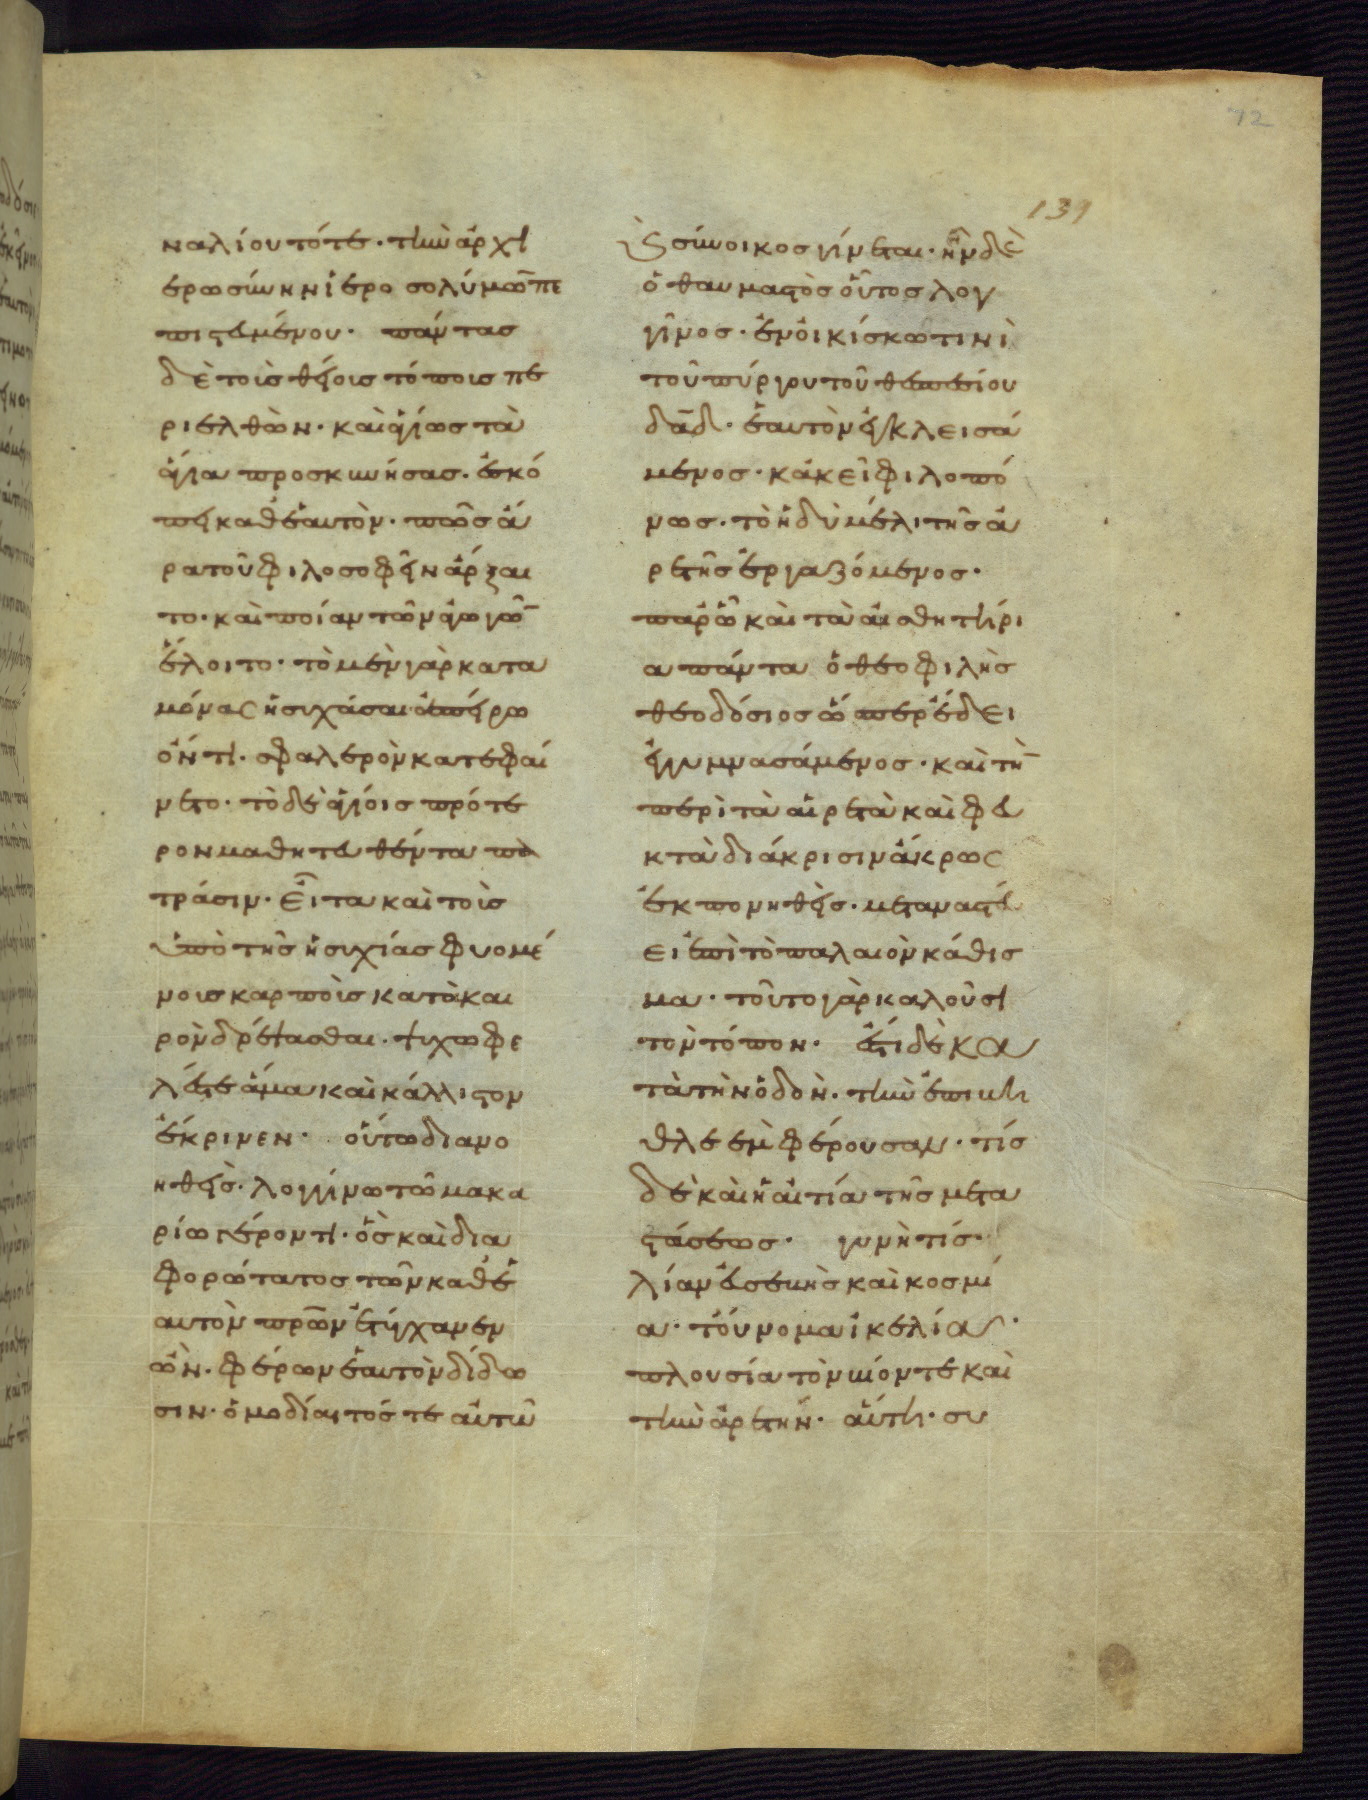 72
139
ναλίου τότε· τὴν ἀρχι
ερωσύνην ἱεροσολύμων πε
πιστευμένου· πάντας
δὲ τοῖς θείοις τόποις πε
ριελθὼν· καὶ ἁγίως τὰ
ἅγια προσκυνήσας· ἐσκό
πει καθ' ἑαυτὸν· πῶς ἄ
ρα τοῦ φιλοσοφεῖν ἄρξαι
το· καὶ ποίαν τῶν ἀγωγῶν
ἕλοιτο· τὸ μὲν γὰρ κατα
μόνας ἡσυχάσαι ἀπείρω
ὄντι· σφαλερὸν κατεφαί
νετο· τὸ δὲ ἁγίοις πρότε
ρον μαθητευθέντα πα
τράσιν· εἶτα καὶ τοῖς
ὑπὸ τῆς ἡσυχίας φυομέ
νοις καρποῖς κατὰ και
ρὸν δρέψασθαι· ψυχωφε
λές τε ἅμα καὶ κάλλιστον
ἔκρινεν· οὕτω διανο
ηθεὶς· λογγίνω τῶ μακα
ρίω γέροντι· ὃς καὶ δια
φορώτατος τῶν καθ' ἑ
αυτὸν πρῶν ἐτύγχανεν
ὢν· φέρων ἑαυτὸν δίδω
σιν· ὁμοδίαιτός τε αὐτῶ
ξ σύνοικος γίνεται· ἦν δὲ
ὁ θαυμαστὸς οὗτος λογ
γῖνος· ἐν οἰκίσκω τινὶ
τοῦ πύργου τοῦ θεσπεσίου
δᾶδ· ἑαυτὸν ἐγκλεισά
μενος· κἀκεῖ φιλοπό
νως· τὸ ἡδὺ μέλι τῆς ἀ
ρετῆς ἐργαζόμενος·
παρ' ὧ καὶ τὰ αἰσθητήρι
α πάντα ὁ θεοφιλὴς
θεοδόσιος ὥσπερ ἔδει
ἐγγυμνασάμενος· καὶ τὴν
περὶ τὰ αἱρετὰ καὶ φευ
κτὰ διάκρισιν ἄκρως
ἐκπονηθεὶς· μεταναστεύ
ει ἐπὶ τὸ παλαιὸν κάθισ
μα· τοῦτο γὰρ καλοῦσι
τὸν τόπον· ἔστι δὲ κα
τὰ τὴν ὁδὸν· τὴν ἐπὶ τὴν
θλεὲμ φέρουσαν· τίς
δὲ καὶ ἡ αἰτία τῆς μετα
στάσεως· γυνὴ τίς·
λίαν εὐσεβὴς καὶ κοσμί
α· τοὔνομα ἰκελία·
πλουσία τὸν βίον τε καὶ
τὴν ἀρετὴν· αὕτη· συ